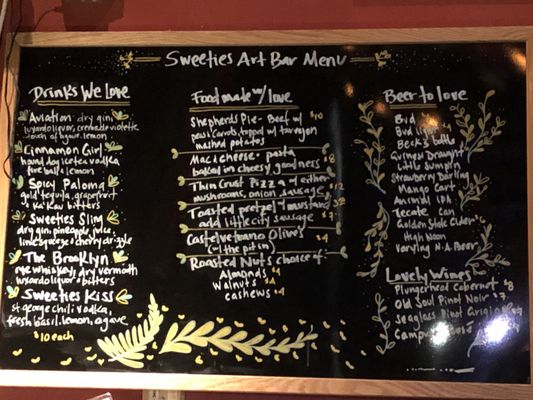 Sweeties Art Bar Menu
Drinks We love
Aviation - dry gin
luxardo liquor, creme de violette
touch of agave lemon
Cinnamon Girl
hand dog iced tea vodka
fireball lemon
Spicy Paloma
gold tequila, grapefruit
Sweeties Sling
dry gin, pineapple juice
lime squeeze cherry drizzle
The Brooklyn
rye whiskey, dry vermouth
luxardo liquor bitters
Sweeties Kiss
st. george chili vodka,
fresh basil, lemon, agave
$10 each
Food made w/ love
Shepherds Pie - Beef w/ $10
peas & carrots, topped w/ tarragon
mashed potatoes
Mac & cheese - pasta
baked in cheesy goodness $8
Thin Crust Pizza w/ either
mushrooms, onion, sausage $12
Toasted pretzel w/ mustard
add little city sausage $7
Castelvetrano Olives
(w/ the pit in) $4
Roasted Nuts choice of
Almonds $4
Walnuts $4
cashews $4
Beer to love
Bud
Bud light
Beck's bottle
Guiness Draught
Little Sumpin
Strawberry Darling
Mango Cart
Animal IPA
Tecate Can
Golden State Cider
High Noon
Varying N.A Beer
Lovely Wines
Plungerhead Cabernet $8
Old Soul Pinot Noir $7
Seaglass Pinot Grigio